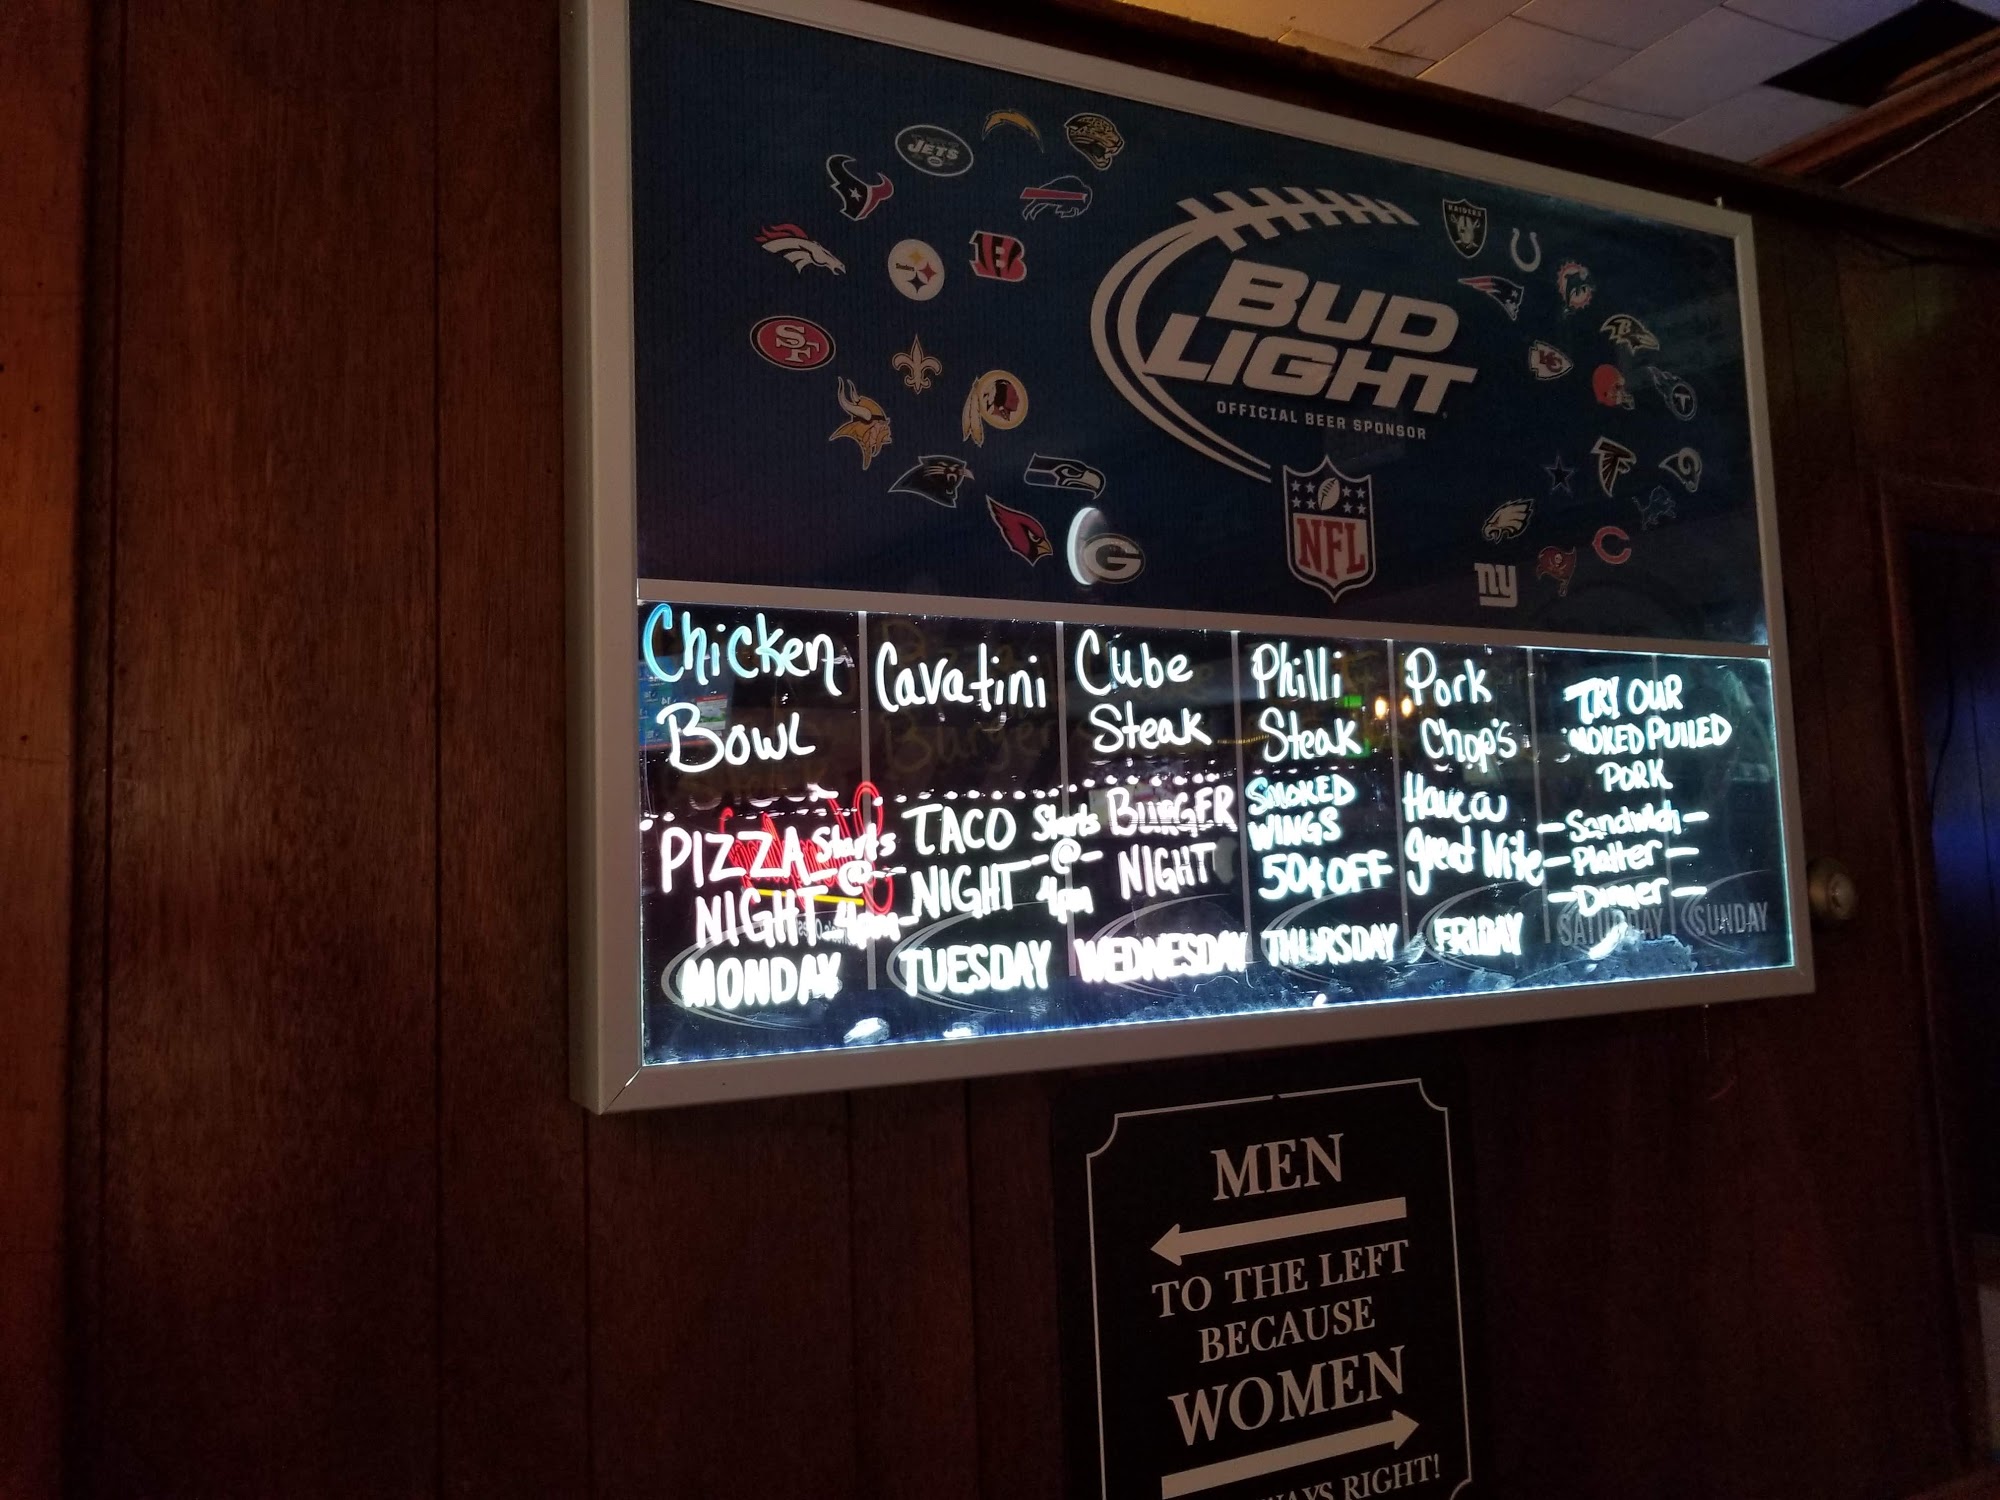 JETS
RAIDERS
Steelers
SF
KC
T
BUD
LIGHT
OFFICIAL BEER SPONSOR
NFL
G
C
ny
Chicken
Bowl
PIZZA Starts
NIGHT @ 4pm
MONDAY
Cavatini
TACO Starts
NIGHT @ 4pm
TUESDAY
Cube
Steak
BURGER
NIGHT
WEDNESDAY
Philli
Steak
SMOKED
WINGS
50¢ OFF
THURSDAY
Pork
Chop's
Have a
great Nite
FRIDAY
TRY OUR
MOKED PULLED
PORK
- Sandwich -
- Platter -
- Dinner -
SATURDAY
SUNDAY
MEN
TO THE LEFT
BECAUSE
WOMEN
WAYS RIGHT!